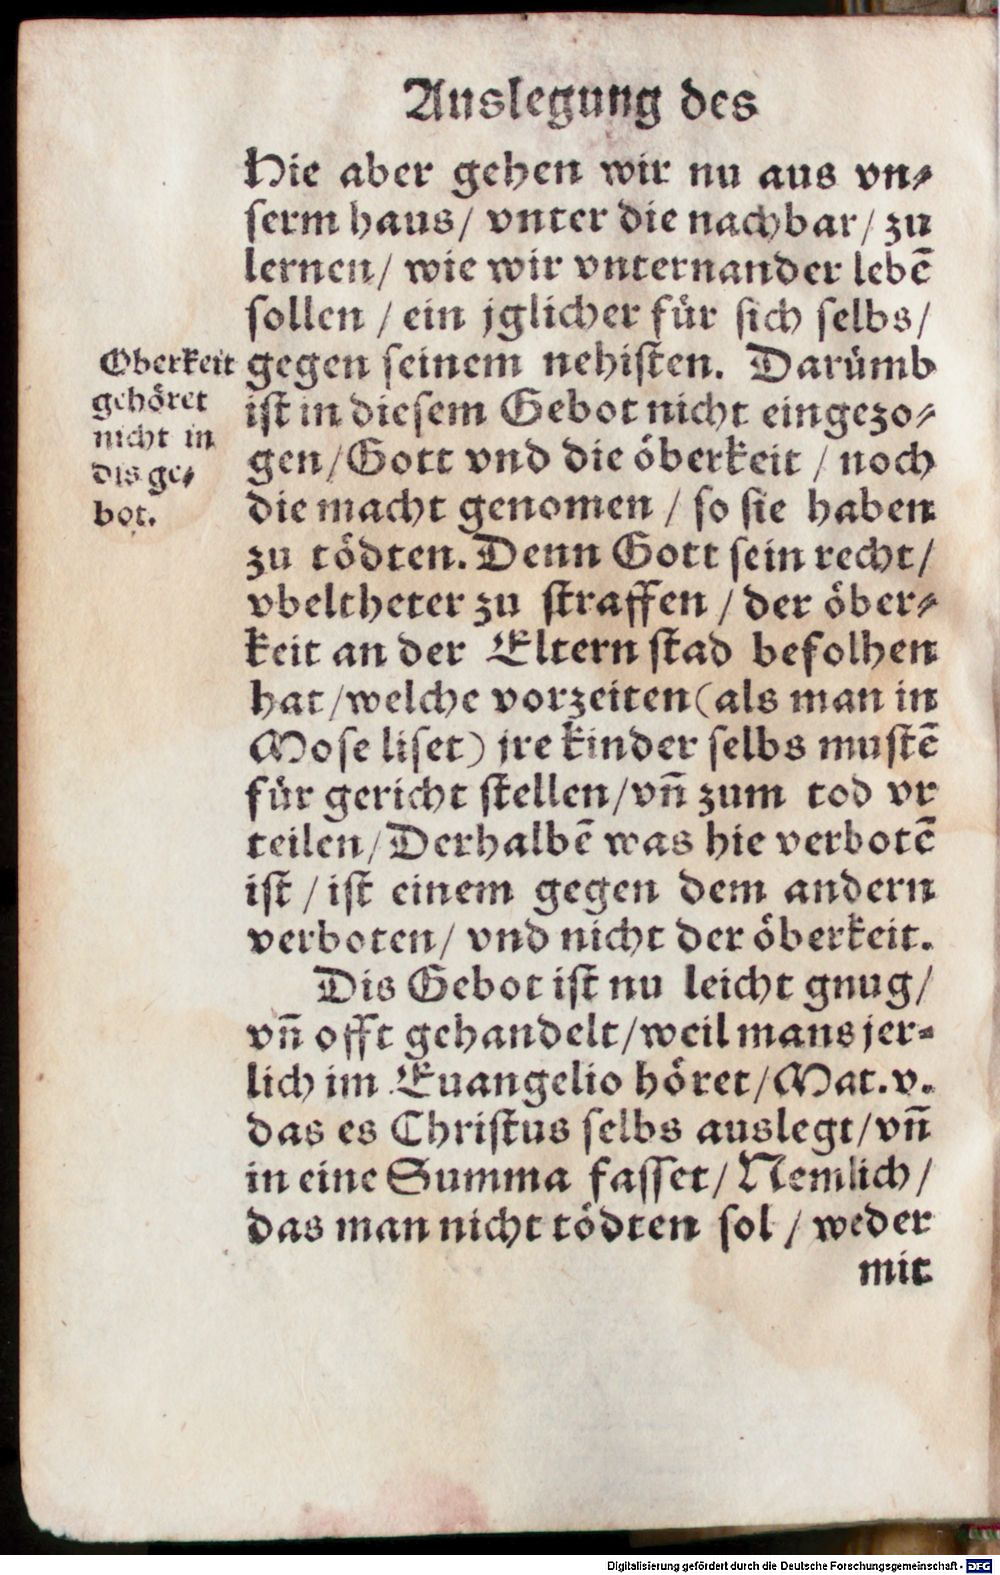 Auslegung des
Hie aber gehen wir nu aus vn⸗
serm haus/ vnter die nachbar/ zu
lernen/ wie wir vnternander lebē
sollen / ein jglicher für sich selbs/
gegen seinem nehisten. Darümb
ist in diesem Gebot nicht eingezo⸗
gen/Gott vnd die öberkeit / noch
die macht genomen / so sie haben
zu tödten. Denn Gott sein recht/
vbeltheter zu straffen / der öber⸗
keit an der Eltern stad befolhen
hat/welche vorzeiten(als man in
Mose liset) jre kinder selbs mustē
für gericht stellen/vn̄ zum tod vr
teilen/Derhalbē was hie verbotē
ist / ist einem gegen dem andern
verboten/ vnd nicht der öberkeit.
Dis Gebot ist nu leicht gnug/
vn̄ offt gehandelt/weil mans jer⸗
lich im Euangelio höret/Mat.v.
das es Christus selbs auslegt/vn̄
in eine Summa fasset/Nemlich/
das man nicht tödten sol / weder
mit
Oberkeit
gehöret
nicht in
dis ge⸗
bot.
Digitalisierung gefördert durch die Deutsche Forschungsgemeinschaft - DFG